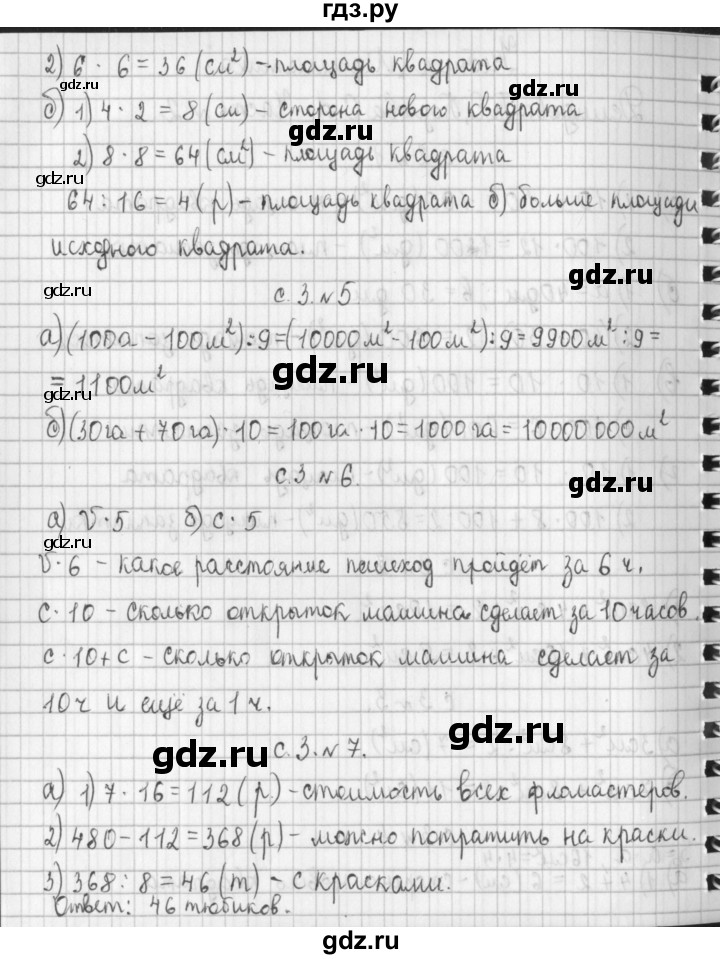 гдз.ру
2) 6 · 6 = 36 (см²) – площадь квадрата
gdz.ru
gdz.ru
б) 1) 4 · 2 = 8 (см) – сторона нового квадрата
gdz.ru
2) 8 · 8 = 64 (см²) – площадь квадрата
gdz.ru
64 : 16 = 4 (р) – площадь квадрата б) больше площади
исходного квадрата.
gdz.ru
gdz.ru
с. 3. № 5
а) (100а – 100м²) : 9 = (10000м² – 100м²) : 9 = 9900м² : 9 =
gdz.ru
= 1100м²
gdz.ru
б) (30га + 70га) · 10 = 100га · 10 = 1000га = 10000000м²
с. 3 № 6.
gdz.ru
а) v · 5 б) с · 5
gdz.ru
v · 6 – какое расстояние пешеход пройдёт за 6 ч.
с · 10 – сколько открыток машина сделает за 10 часов.
gdz.ru
с · 10 + с – сколько открыток машина сделает за
10 ч и ещё за 1 ч.
gdz.ru
gdz.ru
с. 3. № 7.
а) 1) 7 · 16 = 112 (р) – стоимость всех фломастеров.
gdz.ru
2) 480 – 112 = 368 (р) – можно потратить на краски.
3) 368 : 8 = 46 (т) – с красками.
gdz.ru
Ответ: 46 тюбиков.
gdz.ru